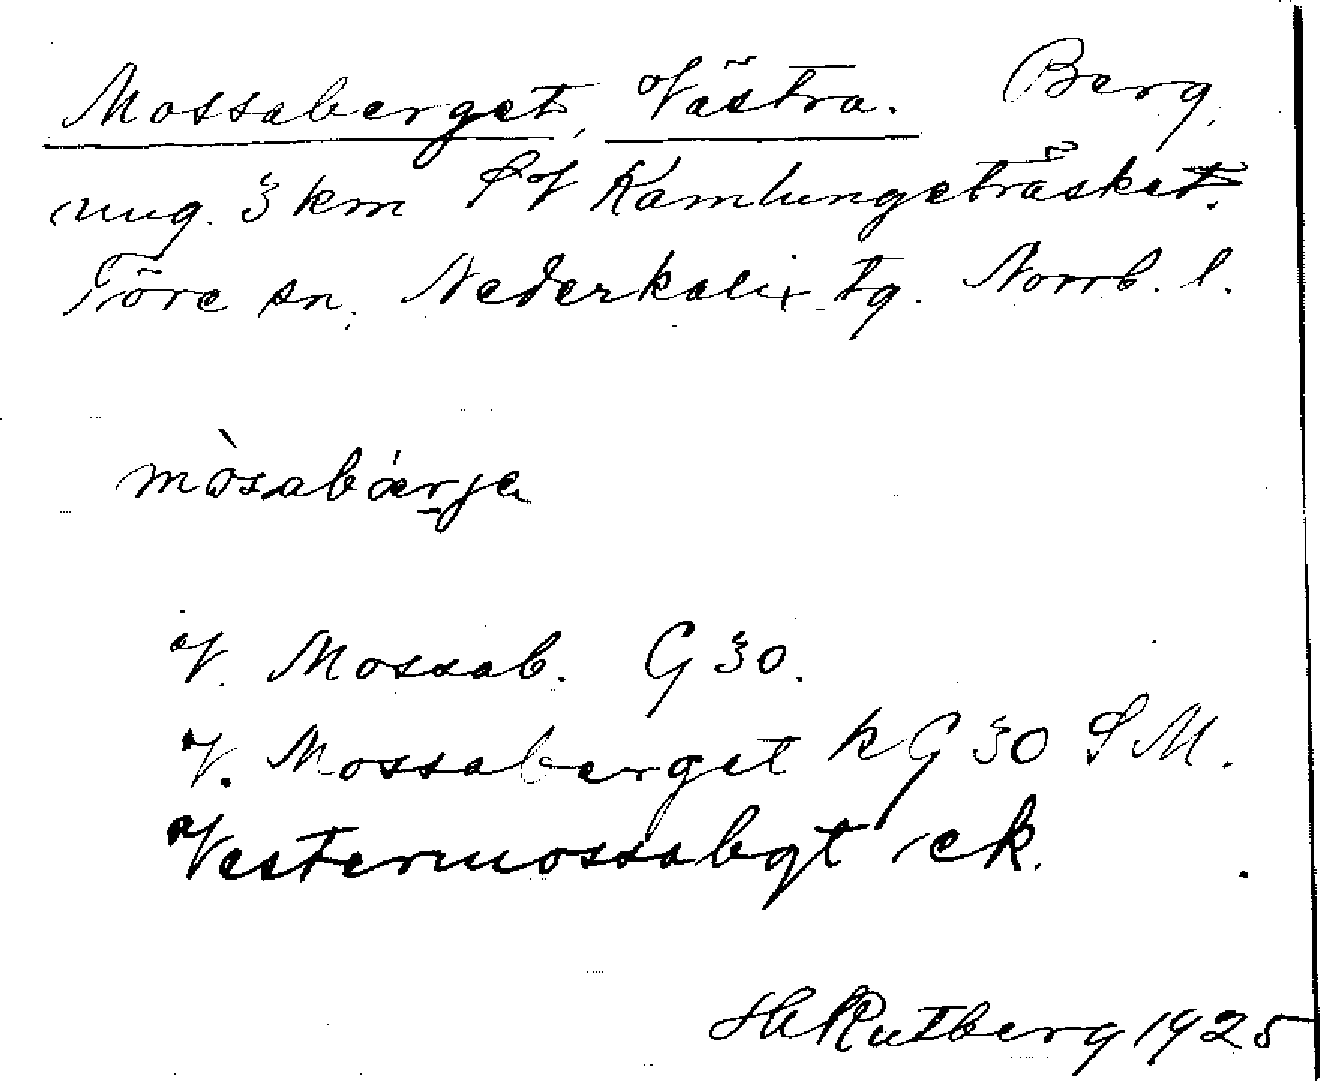 Mossaberget, Västra. Berg,
ung. 3 km SV Kamlungeträsket.
Töre sn, Nederkalix tg. Norrb. l.
mòsabárje
V. Mossab. G 30.
V. Mossaberget k G 30 S M.
Vestermossabgt ek.
H Rutberg 1925